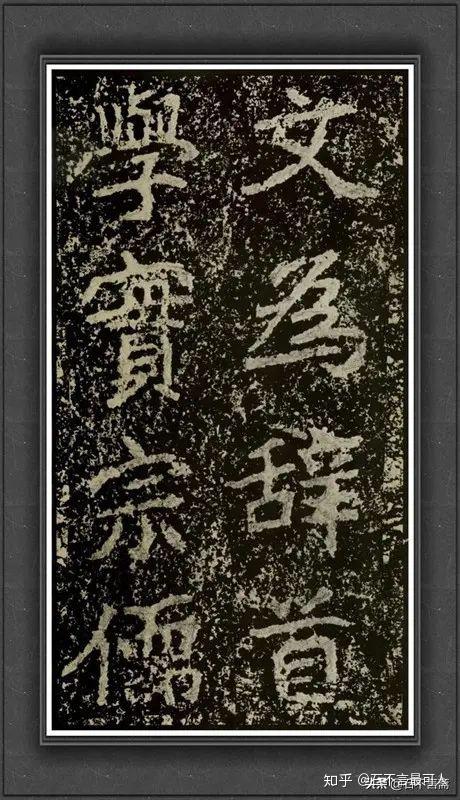 文為辞首
學實宗儒
知乎 @石不言最可人